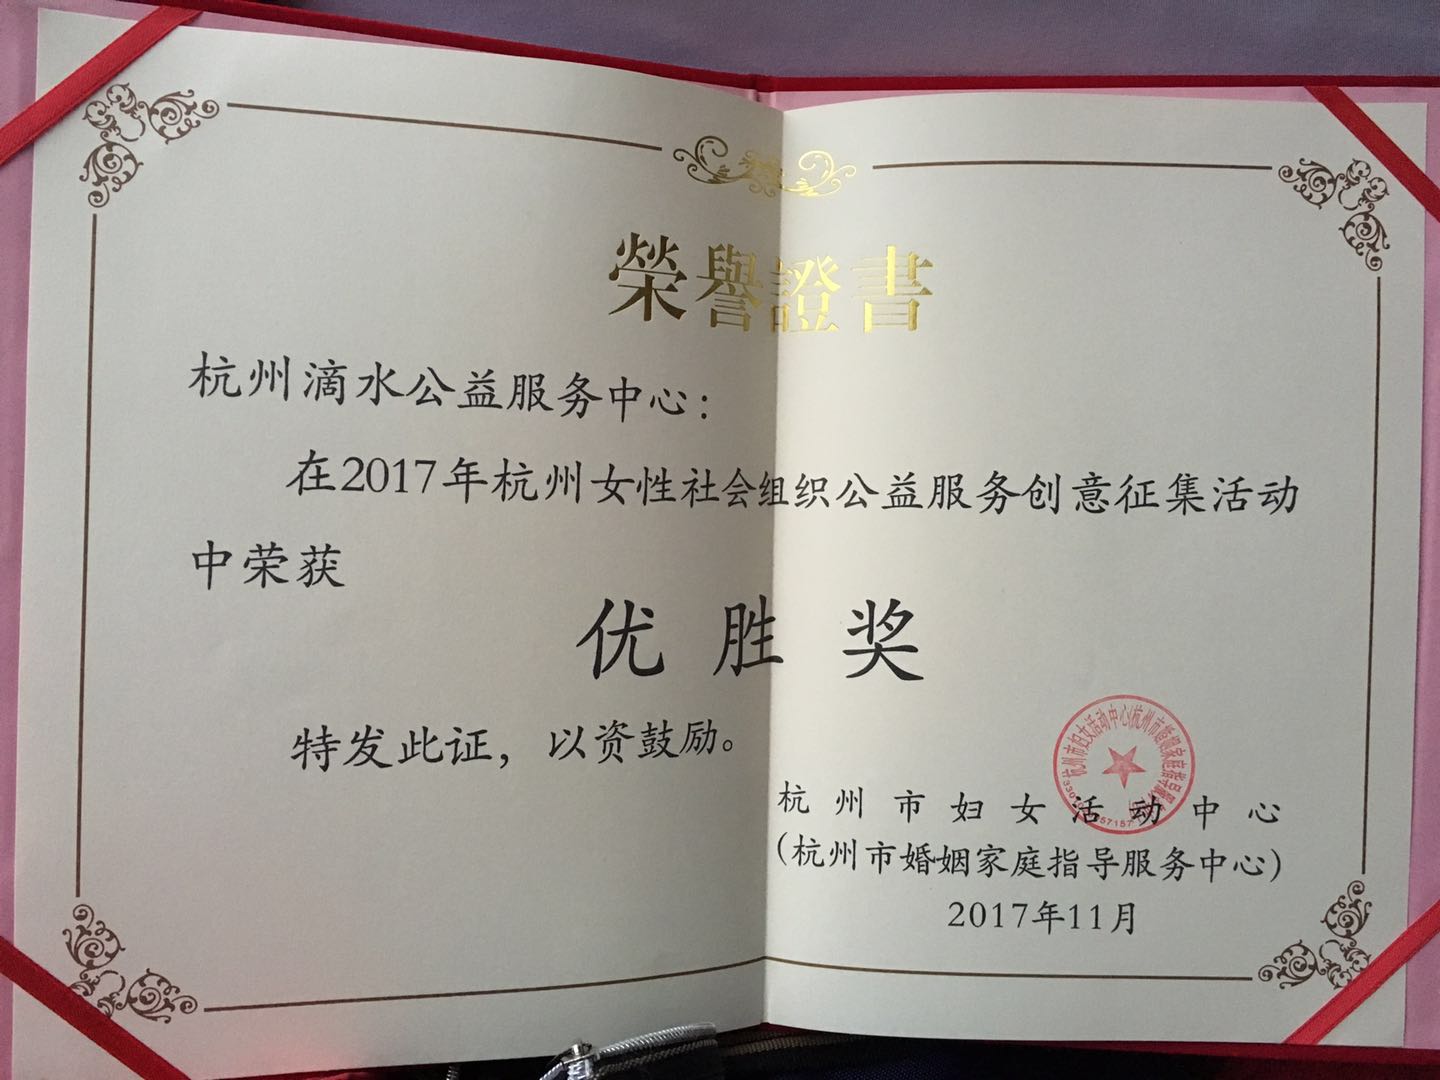 榮譽證書
杭州滴水公益服务中心：
在2017年杭州女性社会组织公益服务创意征集活动
中荣获
优胜奖
特发此证，以资鼓励。
杭州市妇女活动中心
（杭州市婚姻家庭指导服务中心）
2017年11月
杭州市妇女活动中心(杭州市婚姻家庭指导服务中心)